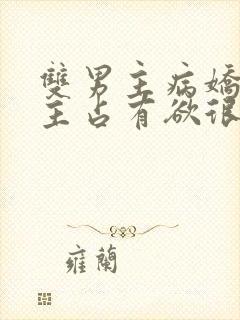 雙男主病嬌
主占有欲很
雍蘭